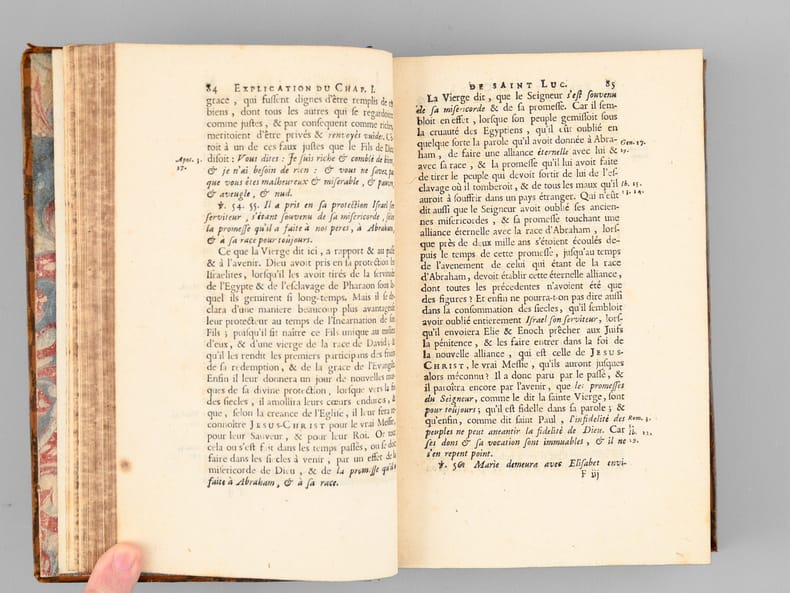 84 EXPLICATION DU CHAP. I.
grace, qui fussent dignes d'être remplis de
biens, dont tous les autres qui se regardoient
comme justes, & par consequent comme riches,
meritoient d'être privés & renvoyés vuides.
toit à un de ces faux justes que le Fils de Dieu
Apoc. 3.
17.
disoit : Vous dites : Je suis riche & comblé de biens,
& je n'ai besoin de rien : & vous ne savez pas
que vous êtes malheureux & miserable, & pauvre,
& aveugle, & nud.
℣. 54. 55. Il a pris en sa protection Israel son
serviteur, s'étant souvenu de sa misericorde, selon
la promesse qu'il a faite à nos peres, à Abraham,
& à sa race pour toujours.
Ce que la Vierge dit ici, a rapport & au passé
& à l'avenir. Dieu avoit pris en la protection les
Israelites, lorsqu'il les avoit tirés de la servitude
de l'Egypte & de l'esclavage de Pharaon sous lequel
quel ils gemirent si long-temps. Mais il se de-
clara d'une maniere beaucoup plus avantageuse
leur protecteur au temps de l'Incarnation de son
Fils ; puisqu'il fit naître ce Fils unique au milieu
d'eux, & d'une vierge de la race de David; &
qu'il les rendit les premiers participans des fruits
de sa redemption, & de la grace de l'Evangile.
Enfin il leur donnera un jour de nouvelles mar-
ques de sa divine protection, lorsque vers la fin
des siecles, il amollira leurs cœurs endurcis, &
que, selon la creance de l'Eglise, il leur fera re-
connoître JESUS-CHRIST pour le vrai Messie,
pour leur Sauveur, & pour leur Roi. Or tout
cela ou s'est fait dans les temps passés, ou se doit
faire dans les siecles à venir, par un effet de la
misericorde de Dieu, & de la promesse qu'il a
faite à Abraham, & à sa race.
DE SAINT LUC. 85
La Vierge dit, que le Seigneur s'est souvenu
de sa misericorde & de sa promesse. Car il sem-
bloit en effet, lorsque son peuple gemissoit sous
la cruauté des Egyptiens, qu'il eût oublié en
quelque sorte la parole qu'il avoit donnée à Abra-
Gen. 17.
19.
ham, de faire une alliance éternelle avec lui &
avec sa race, & la promesse qu'il lui avoit faite
de tirer le peuple qui devoit sortir de lui de l'es-
clavage où il tomberoit, & de tous les maux qu'il
Ib. 15.
13. 14.
auroit à souffrir dans un pays étranger. Qui n'eût
dit aussi que le Seigneur avoit oublié ses ancien-
nes misericodes, & sa promesse touchant une
alliance éternelle avec la race d'Abraham, lors-
que près de deux mille ans s'étoient écoulés de-
puis le temps de cette promesse, jusqu'au temps
de l'avenement de celui qui étant de la race
d'Abraham, devoit établir cette éternelle alliance,
dont toutes les précedentes n'avoient été que
des figures ? Et enfin ne pourra-t-on pas dire aussi
dans la consommation des siecles, qu'il sembloit
avoir oublié entierement Israel son serviteur, lors-
qu'il envoiera Elie & Enoch prêcher aux Juifs
la pénitence, & les faire entrer dans la foi de
la nouvelle alliance, qui est celle de JESUS-
CHRIST, le vrai Messie, qu'ils auront jusques
alors méconnu ? Il a donc paru par le passé, &
il paroîtra encore par l'avenir, que les promesses
du Seigneur, comme le dit la sainte Vierge, sont
pour toujours; qu'il est fidelle dans sa parole ; &
qu'enfin, comme dit saint Paul, l'infidelité des
Rom. 3.
3.
peuples ne peut aneantir la fidelité de Dieu. Car
Ib. 11.
29.
ses dons & sa vocation sont immuables, & il ne
s'en repent point.
℣. 56. Marie demeura avec Elisabet envi-
F iij